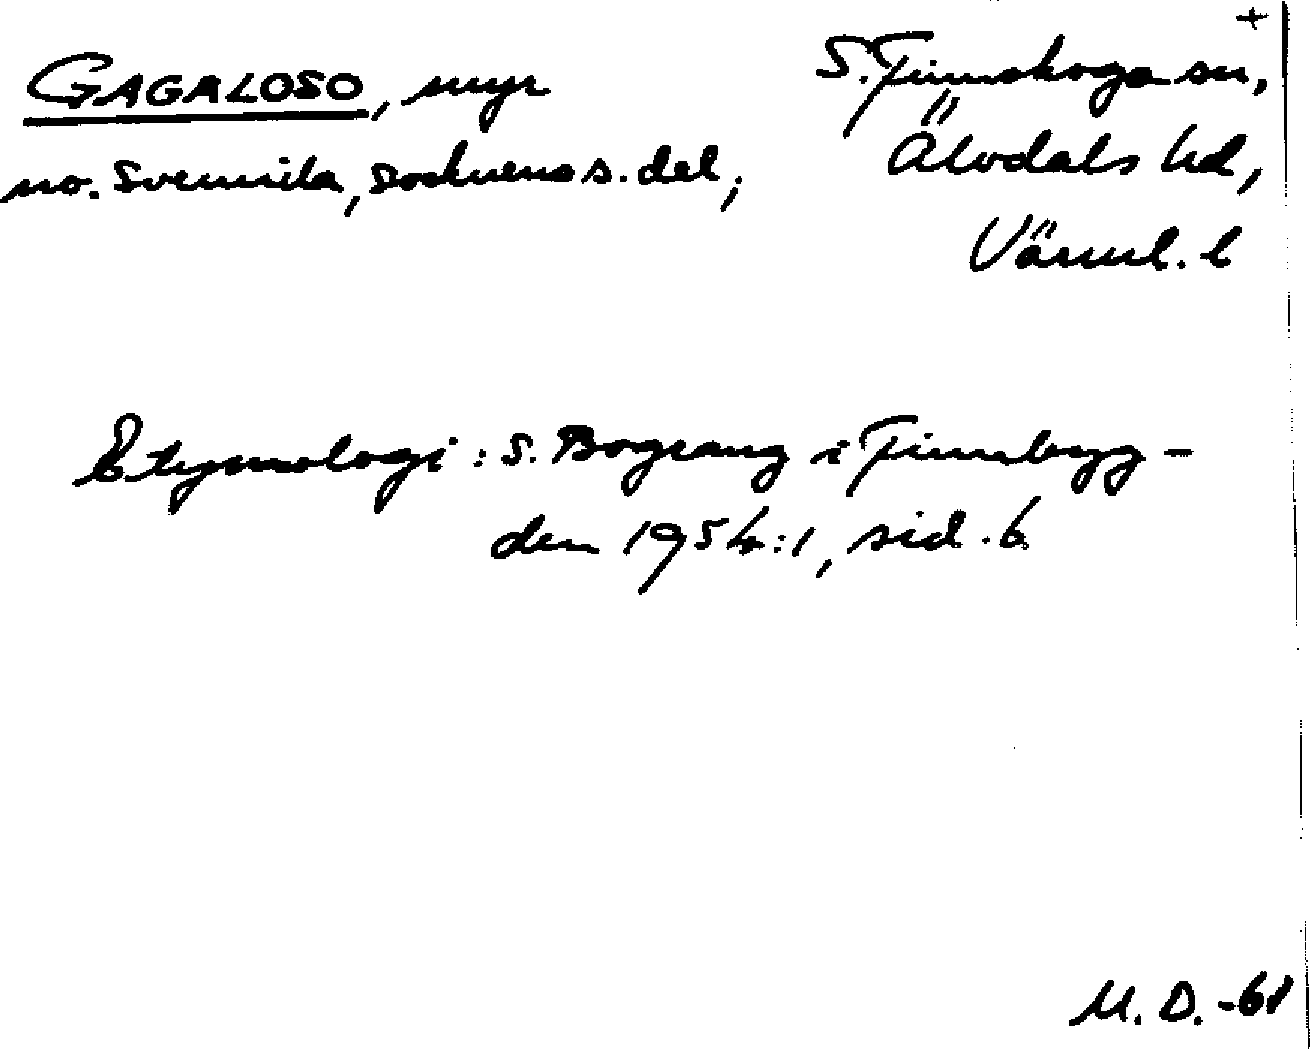 +
GAGALOSO, myr
no. Svennila, socknens s. del;
S. Finnskoga sn,
Älvdals hd,
Värml. l
Etymologi: S. Bograng i Finnbyg-
den 1954:1, sid. 6
M. D. -61